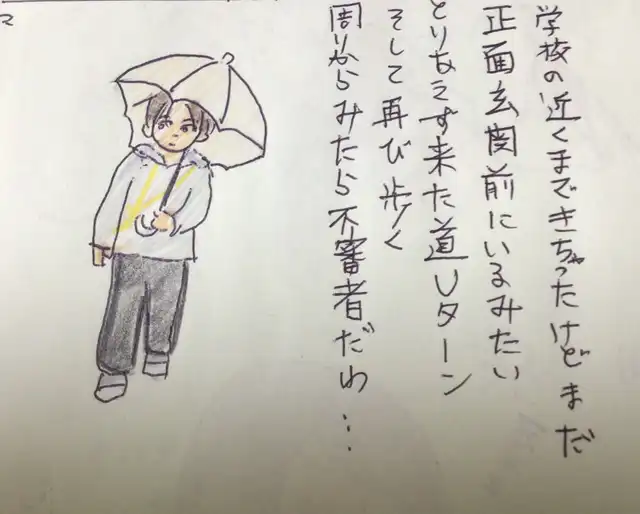 学校の近くまできちゃったけどまだ
正面玄関前にいるみたい
とりあえず来た道Uターン
そして再び歩く
周りからみたら不審者だわ…